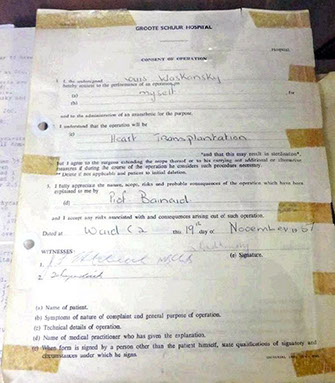 GROOTE SCHUUR HOSPITAL
HOSPITAL
CONSENT OF OPERATION
1. I, the undersigned Louis Waskansky
hereby consent to the performance of an operation on
(a) myself for
(b)
and to the administration of an anaesthetic for the purpose.
2. I understand that the operation will be
(c) Heart Transplantation
*and that this may result in sterilization*.
but I agree to the surgeon extending the scope thereof or to his carrying out additional or alternative
measures if during the course of the operation he considers such procedure necessary.
* Delete if not applicable and patient to initial deletion.
3. I fully appreciate the nature, scope, risks and probable consequences of the operation which have been
explained to me by
(d) Prof Barnard
and I accept any risks associated with and consequences arising out of such operation.
Dated at Ward C2 this 19th day of November 1967
WITNESSES:
(e) Signature.
1.
2.
(a) Name of patient.
(b) Symptoms of nature of complaint and general purpose of operation.
(c) Technical details of operation.
(d) Name of medical practitioner who has given the explanation.
(e) When form is signed by a person other than the patient himself, state qualifications of signatory and
circumstances under which he signs.